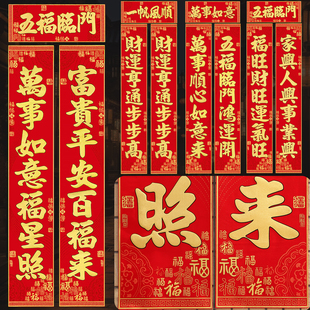 五福臨門
富貴平安百福来
萬事如意福星照
一帆風順
財運亨通步步高
財運亨通步步高
萬事如意
五福臨門鴻運開
萬事順心如意来
五福臨門
家興人興事業興
福旺財旺運氣旺
照
福
福
来
福
福